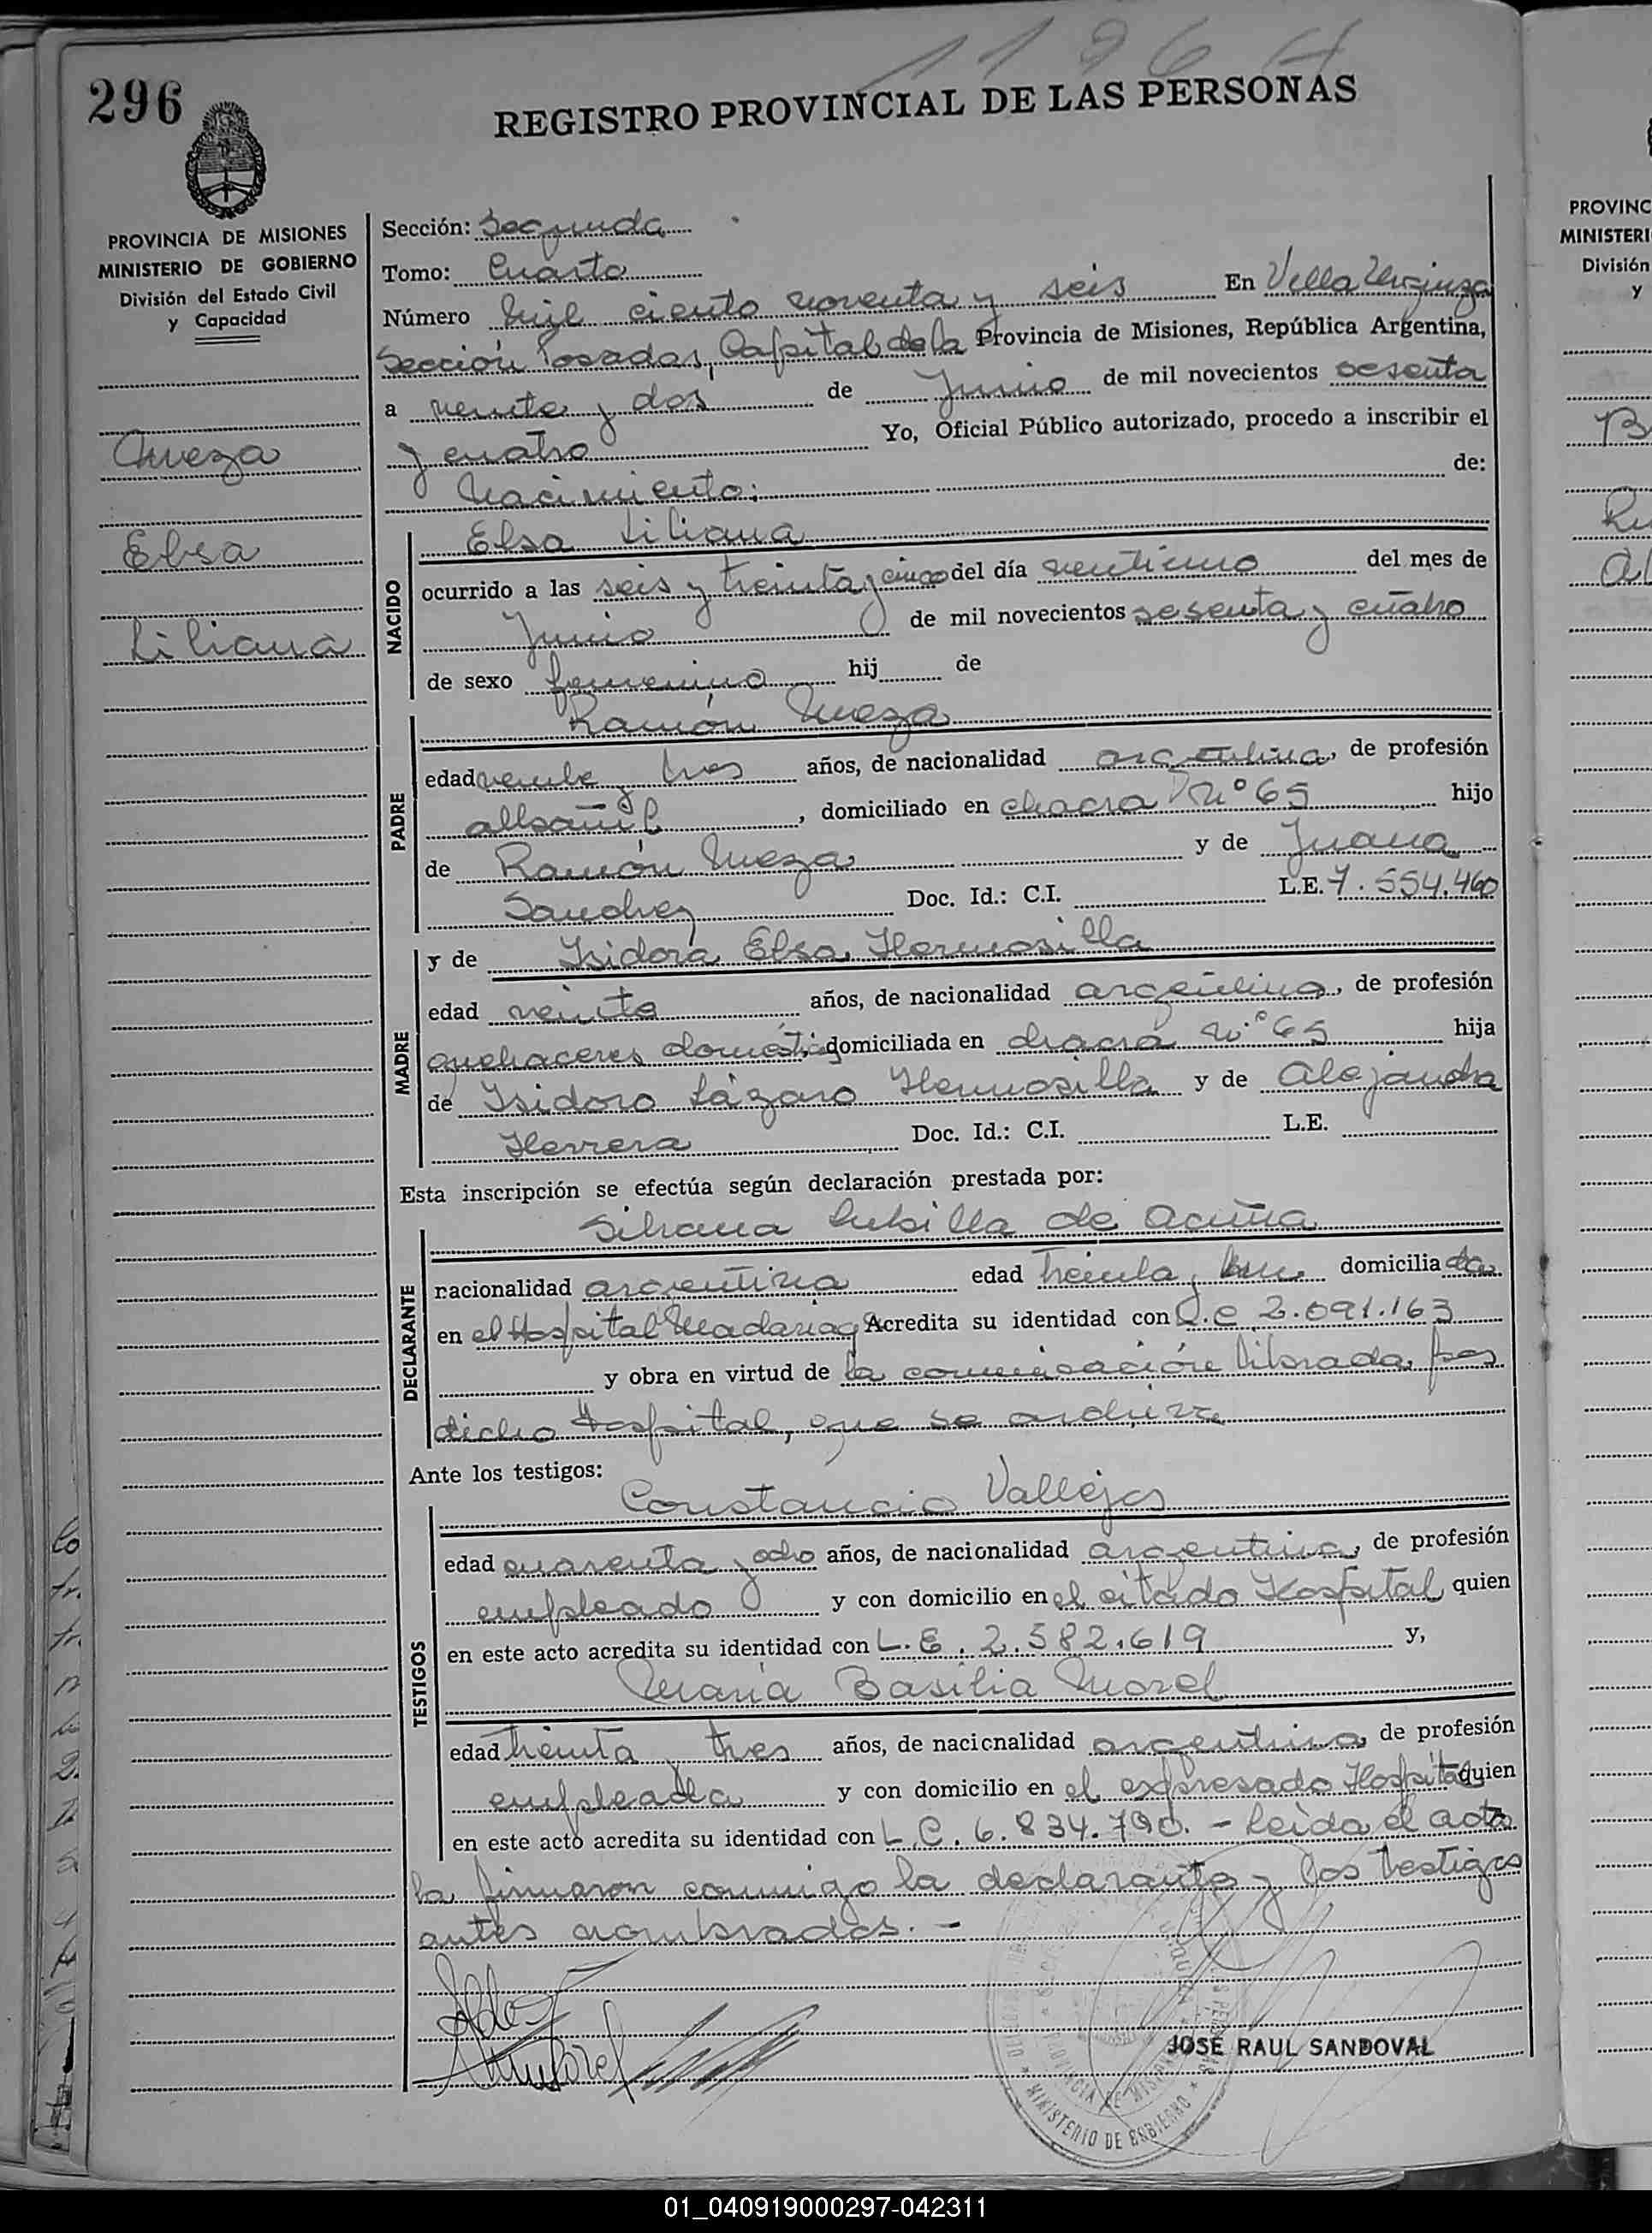 1196 H
296
REGISTRO PROVINCIAL DE LAS PERSONAS
PROVINCIA DE MISIONES
MINISTERIO DE GOBIERNO
División del Estado Civil
y Capacidad
Meza
Elsa
Liliana
Sección: Segunda
Tomo: Cuarto
Número Mil ciento noventa y seis En Villa Urquiza
Sección Posadas, Capital de la Provincia de Misiones, República Argentina,
a veinte y dos de Junio de mil novecientos sesenta
y cuatro Yo, Oficial Público autorizado, procedo a inscribir el
Nacimiento: de:
NACIDO
Elsa Liliana
ocurrido a las seis y treinta y cinco del día veintiuno del mes de
Junio de mil novecientos sesenta y cuatro
de sexo femenino hij de
PADRE
Ramón Meza
edad veinte y tres años, de nacionalidad argentina, de profesión
albañil, domiciliado en chacra Nº 65 hijo
de Ramón Meza y de Juana
Sanchez Doc. Id.: C.I. L.E. 7.554.460
MADRE
y de Isidora Elsa Hermosilla
edad veinte años, de nacionalidad argentina, de profesión
quehaceres domésticos domiciliada en chacra Nº 65 hija
de Isidoro Lázaro Hermosilla y de Alejandra
Herrera Doc. Id.: C.I. L.E.
Esta inscripción se efectúa según declaración prestada por:
DECLARANTE
de Acuña
nacionalidad argentina edad treinta domicilia da
en el Hospital Madariaga Acredita su identidad con L.C 2.091.163
y obra en virtud de la comunicación librada por
dicho Hospital, que se archiva
Ante los testigos:
TESTIGOS
Constancio Vallejos
edad cuarenta y ocho años, de nacionalidad argentina, de profesión
empleado y con domicilio en el citado Hospital quien
en este acto acredita su identidad con L.E. 2.582.619 y,
María Basilia Morel
edad treinta y tres años, de nacionalidad argentina, de profesión
empleada y con domicilio en el expresado Hospital quien
en este acto acredita su identidad con L.C. 6.834.790. - Leida el acta
la firmaron conmigo la declarante y los testigos
antes nombrados. -
JOSE RAUL SANDOVAL
MINISTERIO DE GOBIERNO
PROVINCIA DE MISIONES
PROVINC
MINISTERI
División
y
01_040919000297-042311